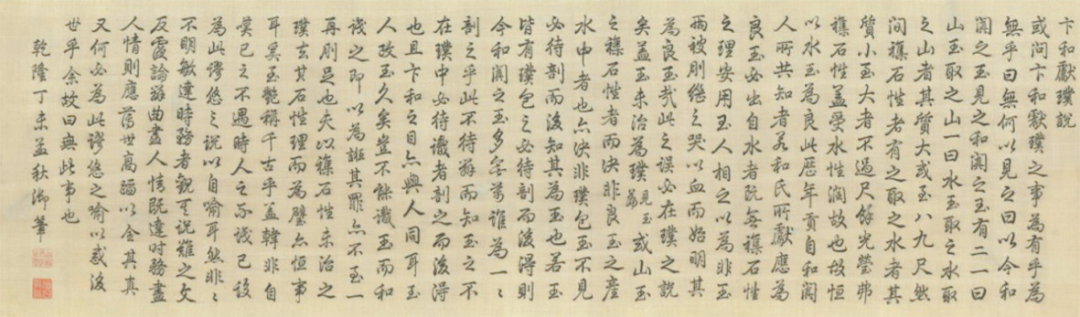 卞和獻璞說
或問卞和獻璞之事為有乎為
無乎曰無何以見之曰以今和
闐之玉見之和闐之玉有二一曰
山玉取之山一曰水玉取之水取
之山者其質大或至八九尺然
間襍石性者有之取之水者其
質小至大者不過尺餘光瑩弗
襍石性蓋受水性潤故也故恒
以水玉為良此歷年貢自和闐
人所共知者若和氏所獻應為
良玉必出自水者既無襍石性
之理安用玉人相之以為非玉
兩被刖繼之哭以血而始明其
為良玉哉此之誤必在璞之說
矣蓋玉未治為璞見玉篇或山玉
之襍石性者而決非良玉之產
水中者也亦決非璞包玉不見
必待剖而後知其為玉也若玉
皆有璞包之必待剖而後得則
今和闐之玉多矣誰為一一
剖之乎此不待辯而知玉之不
在璞中必待識者剖之而後得
也且卞和之目亦與人同耳玉
人攻玉久矣豈不能識玉而和
識之即以為誑其罪亦不至一
再刖足也夫以襍石性未治之
璞去其石性理而為璧亦恒事
耳奚至艷稱千古乎蓋韓非自
嘆己之不遇時人之不識己設
為此謬悠之說以自喻耳然非
不明敏達時務者觀其說難之文
反覆論辯曲盡人情既達時務盡
人情則應落世高蹈以全其真
又何必為此謬悠之喻以惑後
世乎余故曰無此事也
乾隆丁未孟秋御筆